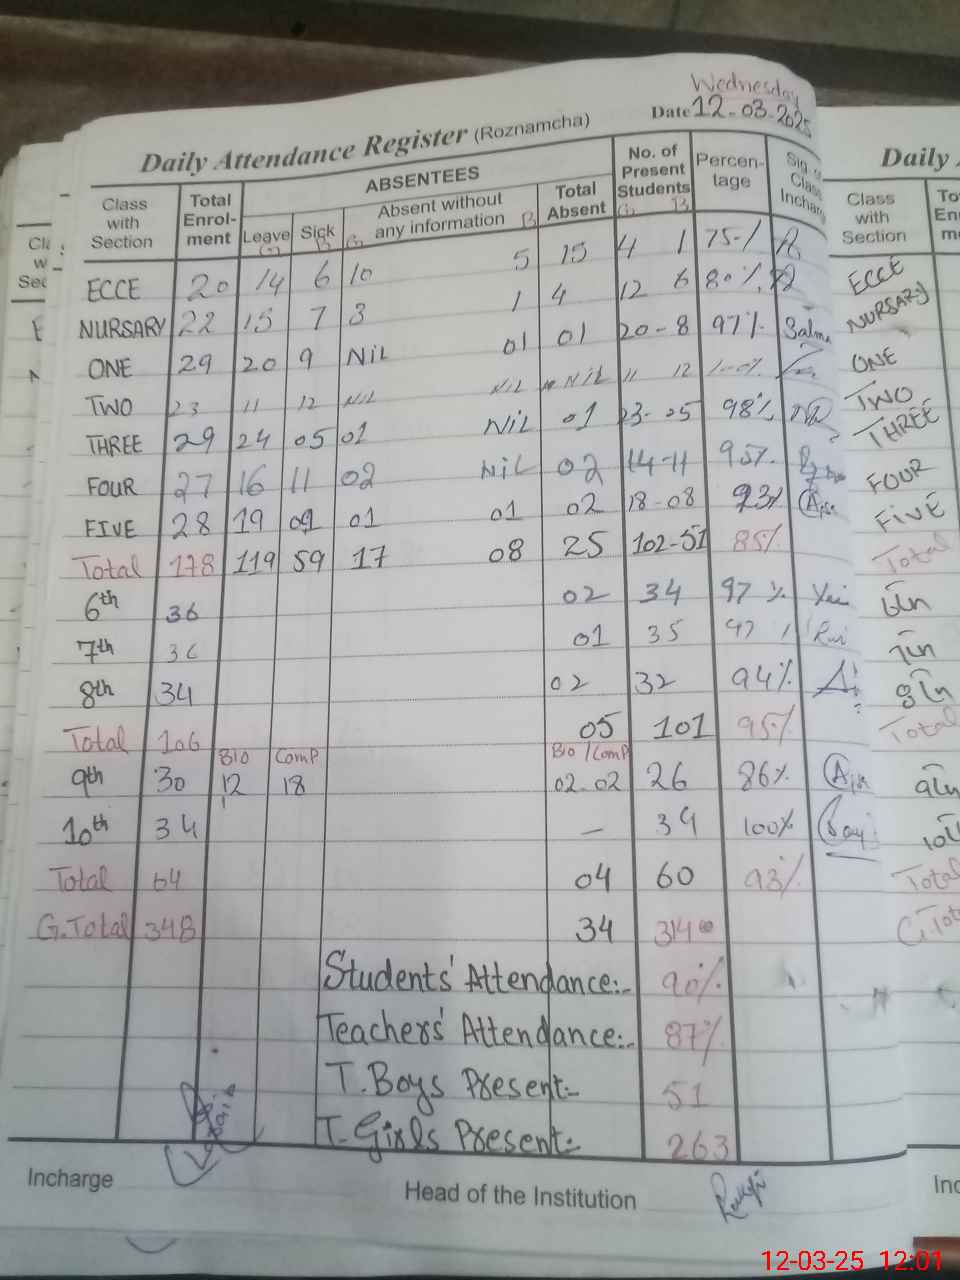 Wednesday
Daily Attendance Register (Roznamcha) Date 12-03-2025
Class with Section | Total Enrol-ment | ABSENTEES | No. of Present Students | Percen-tage | Sig. of Class Incharg
Leave (G) | Sick B | (G) Absent without any information B | Total Absent | (G) B
ECCE 20 14 6 10 5 15 4 1 75-/
NURSARY 22 15 7 3 1 4 12 6 80%
ONE 29 20 9 NiL 01 01 20-8 97% Salma
TWO 23 11 12 NIL NIL NiL 11 12
THREE 29 24 05 01 NiL 01 23-05 98%
FOUR 27 16 11 02 NiL 02 14-11 95%
FIVE 28 19 09 01 01 02 18-08 93%
Total 178 119 59 17 08 25 102-51 85%
6th 36 02 34 97%
7th 36 01 35 97 /
8th 34 02 32 94%
Total 106 05 101 95%
Bio Comp Bio / Comp
9th 30 12 18 02-02 26 86%
10th 34 — 34 100%
Total 64 04 60 93%
G.Total 348 34 314
Students' Attendance:- 90%
Teachers' Attendance:- 87%
T.Boys Present:- 51
T.Girls Present:- 263
Incharge
Head of the Institution
Daily
Class with Section
ECCE
NURSARY
ONE
TWO
THREE
FOUR
FIVE
Total
6th
7th
8th
Total
9th
10t
Total
G.Tot
Inc
12-03-25 12:01